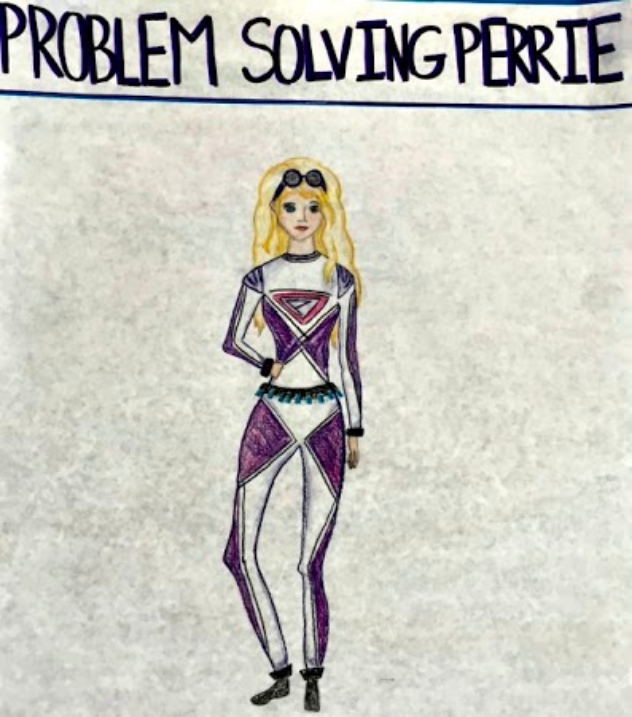 PROBLEM SOLVING PERRIE